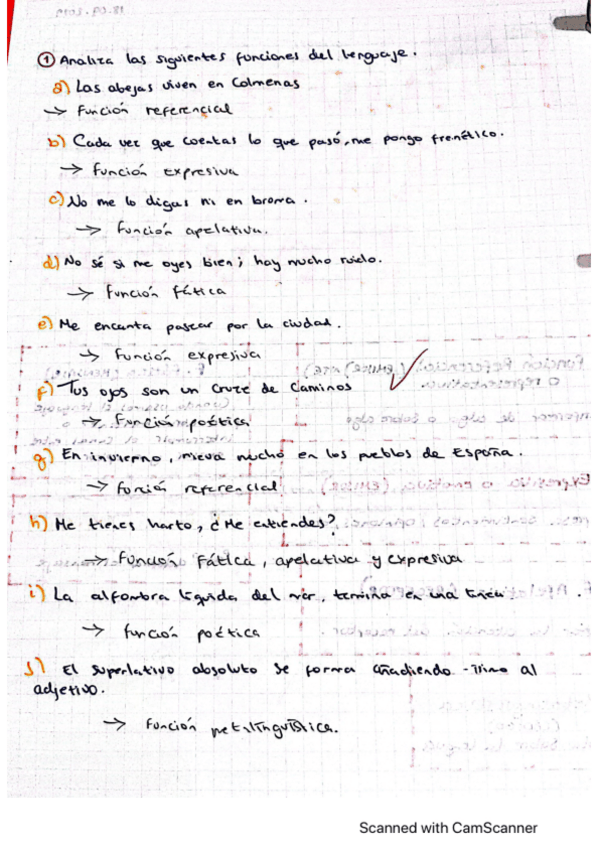 18.09.2019
① Analiza las siguientes funciones del lenguaje.
a) Las abejas viven en Colmenas
→ Función referencial
b) Cada vez que cuentas lo que pasó, me pongo frenético.
→ Función expresiva
c) No me lo digas ni en broma.
→ Función apelativa.
d) No sé si me oyes bien; hay mucho ruido.
→ Función fática
e) Me encanta pasear por la ciudad.
→ Función expresiva
f) Tus ojos son un cruze de caminos
→ Función poética
g) En invierno, nieva mucho en los pueblos de España.
→ Función referencial
h) Me tienes harto, ¿Me entiendes?
→ Función fática, apelativa y expresiva
i) La alfombra líquida del mar, termina en una
→ función poética
j) El superlativo absoluto se forma añadiendo -ísimo al
adjetivo.
→ Función metalinguística.
Scanned with CamScanner